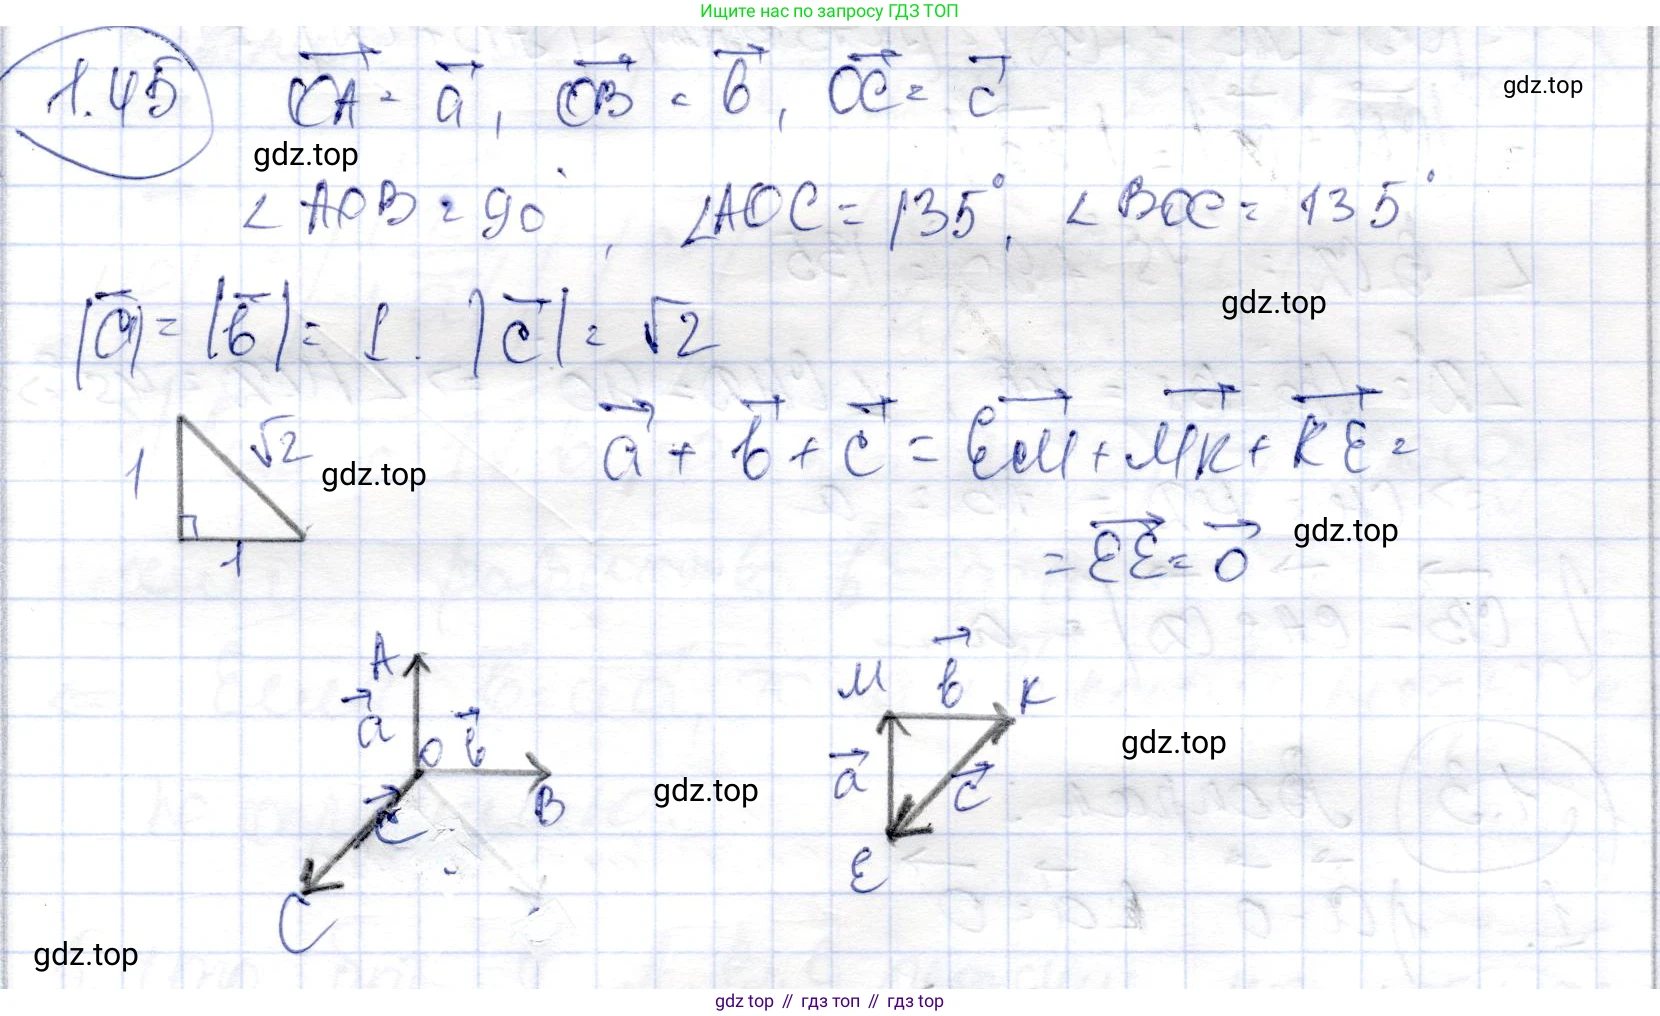 Ищите нас по запросу ГДЗ ТОП
1.45 OA = a, OB = b, OC = c
gdz.top
gdz.top
∠AOB = 90°, ∠AOC = 135°, ∠BOC = 135°
gdz.top
|a| = |b| = 1. |c| = √2
1 √2 gdz.top
a + b + c = EM + MK + KE =
1
= EE = 0 gdz.top
A a O b B c C
gdz.top
M b K a c E
gdz.top
gdz.top
gdz top // гдз топ // гдз top